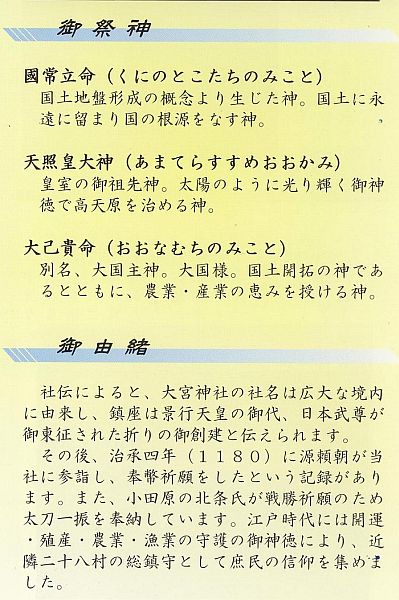 御祭神
國常立命（くにのとこたちのみこと）
国土地盤形成の概念より生じた神。国土に永
遠に留まり国の根源をなす神。
天照皇大神（あまてらすすめおおかみ）
皇室の御祖先神。太陽のように光り輝く御神
徳で高天原を治める神。
大己貴命（おおなむちのみこと）
別名、大国主神。大国様。国土開拓の神であ
るとともに、農業・産業の恵みを授ける神。
御由緒
社伝によると、大宮神社の社名は広大な境内
に由来し、鎮座は景行天皇の御代、日本武尊が
御東征された折りの御創建と伝えられます。
その後、治承四年（１１８０）に源頼朝が当
社に参詣し、奉幣祈願をしたという記録があり
ます。また、小田原の北条氏が戦勝祈願のため
太刀一振を奉納しています。江戸時代には開運
・殖産・農業・漁業の守護の御神徳により、近
隣二十八村の総鎮守として庶民の信仰を集めま
した。